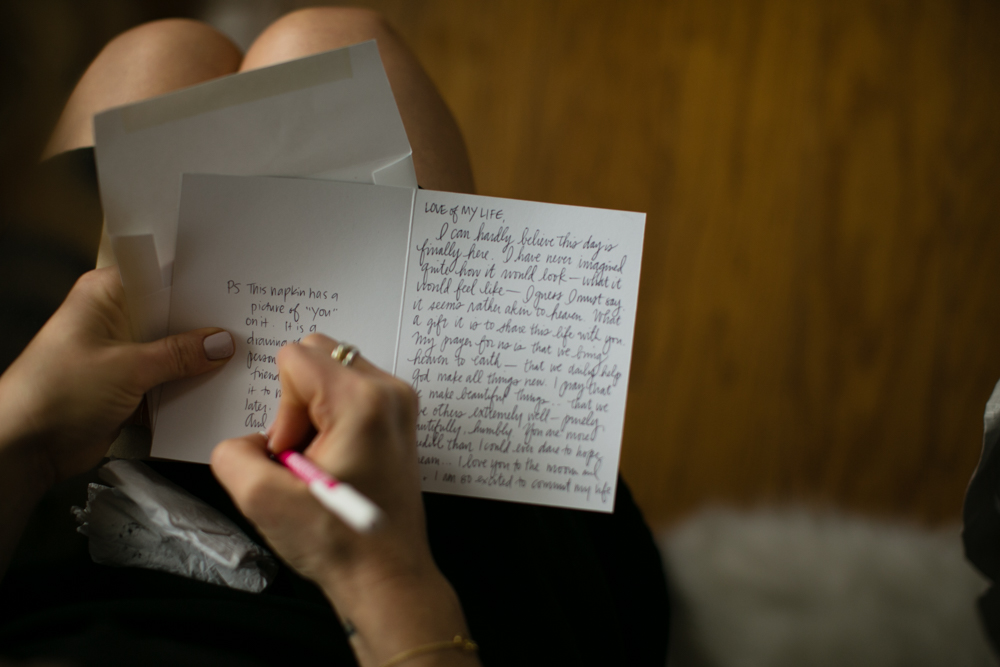 PS This napkin has a
picture of "you"
on it. It is a
drawing
friend
it to
later.
LOVE of MY LIFE,
I can hardly believe this day is
finally here. I have never imagined
quite how it would look — what it
would feel like — I guess I must say
it seems rather akin to heaven. What
a gift it is to share this life with you.
My prayer for us is that we bring
heaven to earth — that we daily help
God make all things new. I pray that
make beautiful things... that we
others extremely well — purely,
humbly. You are more
than I could ever dare to hope,
I love you to the moon and
I am so excited to commit my life